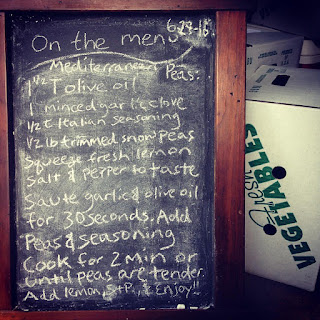 6-29-16
On the menu
Mediterranean Peas:
1 1/2 T olive oil
1 minced garlic clove
1/2 t Italian seasoning
1/2 lb trimmed snow peas
Squeeze fresh lemon
Salt & pepper to taste
Saute garlic & olive oil
for 30 seconds. Add
Peas & seasoning
Cook for 2 min or
until peas are tender.
Add lemon, S+P, & Enjoy!!
Fresh
VEGETABLES